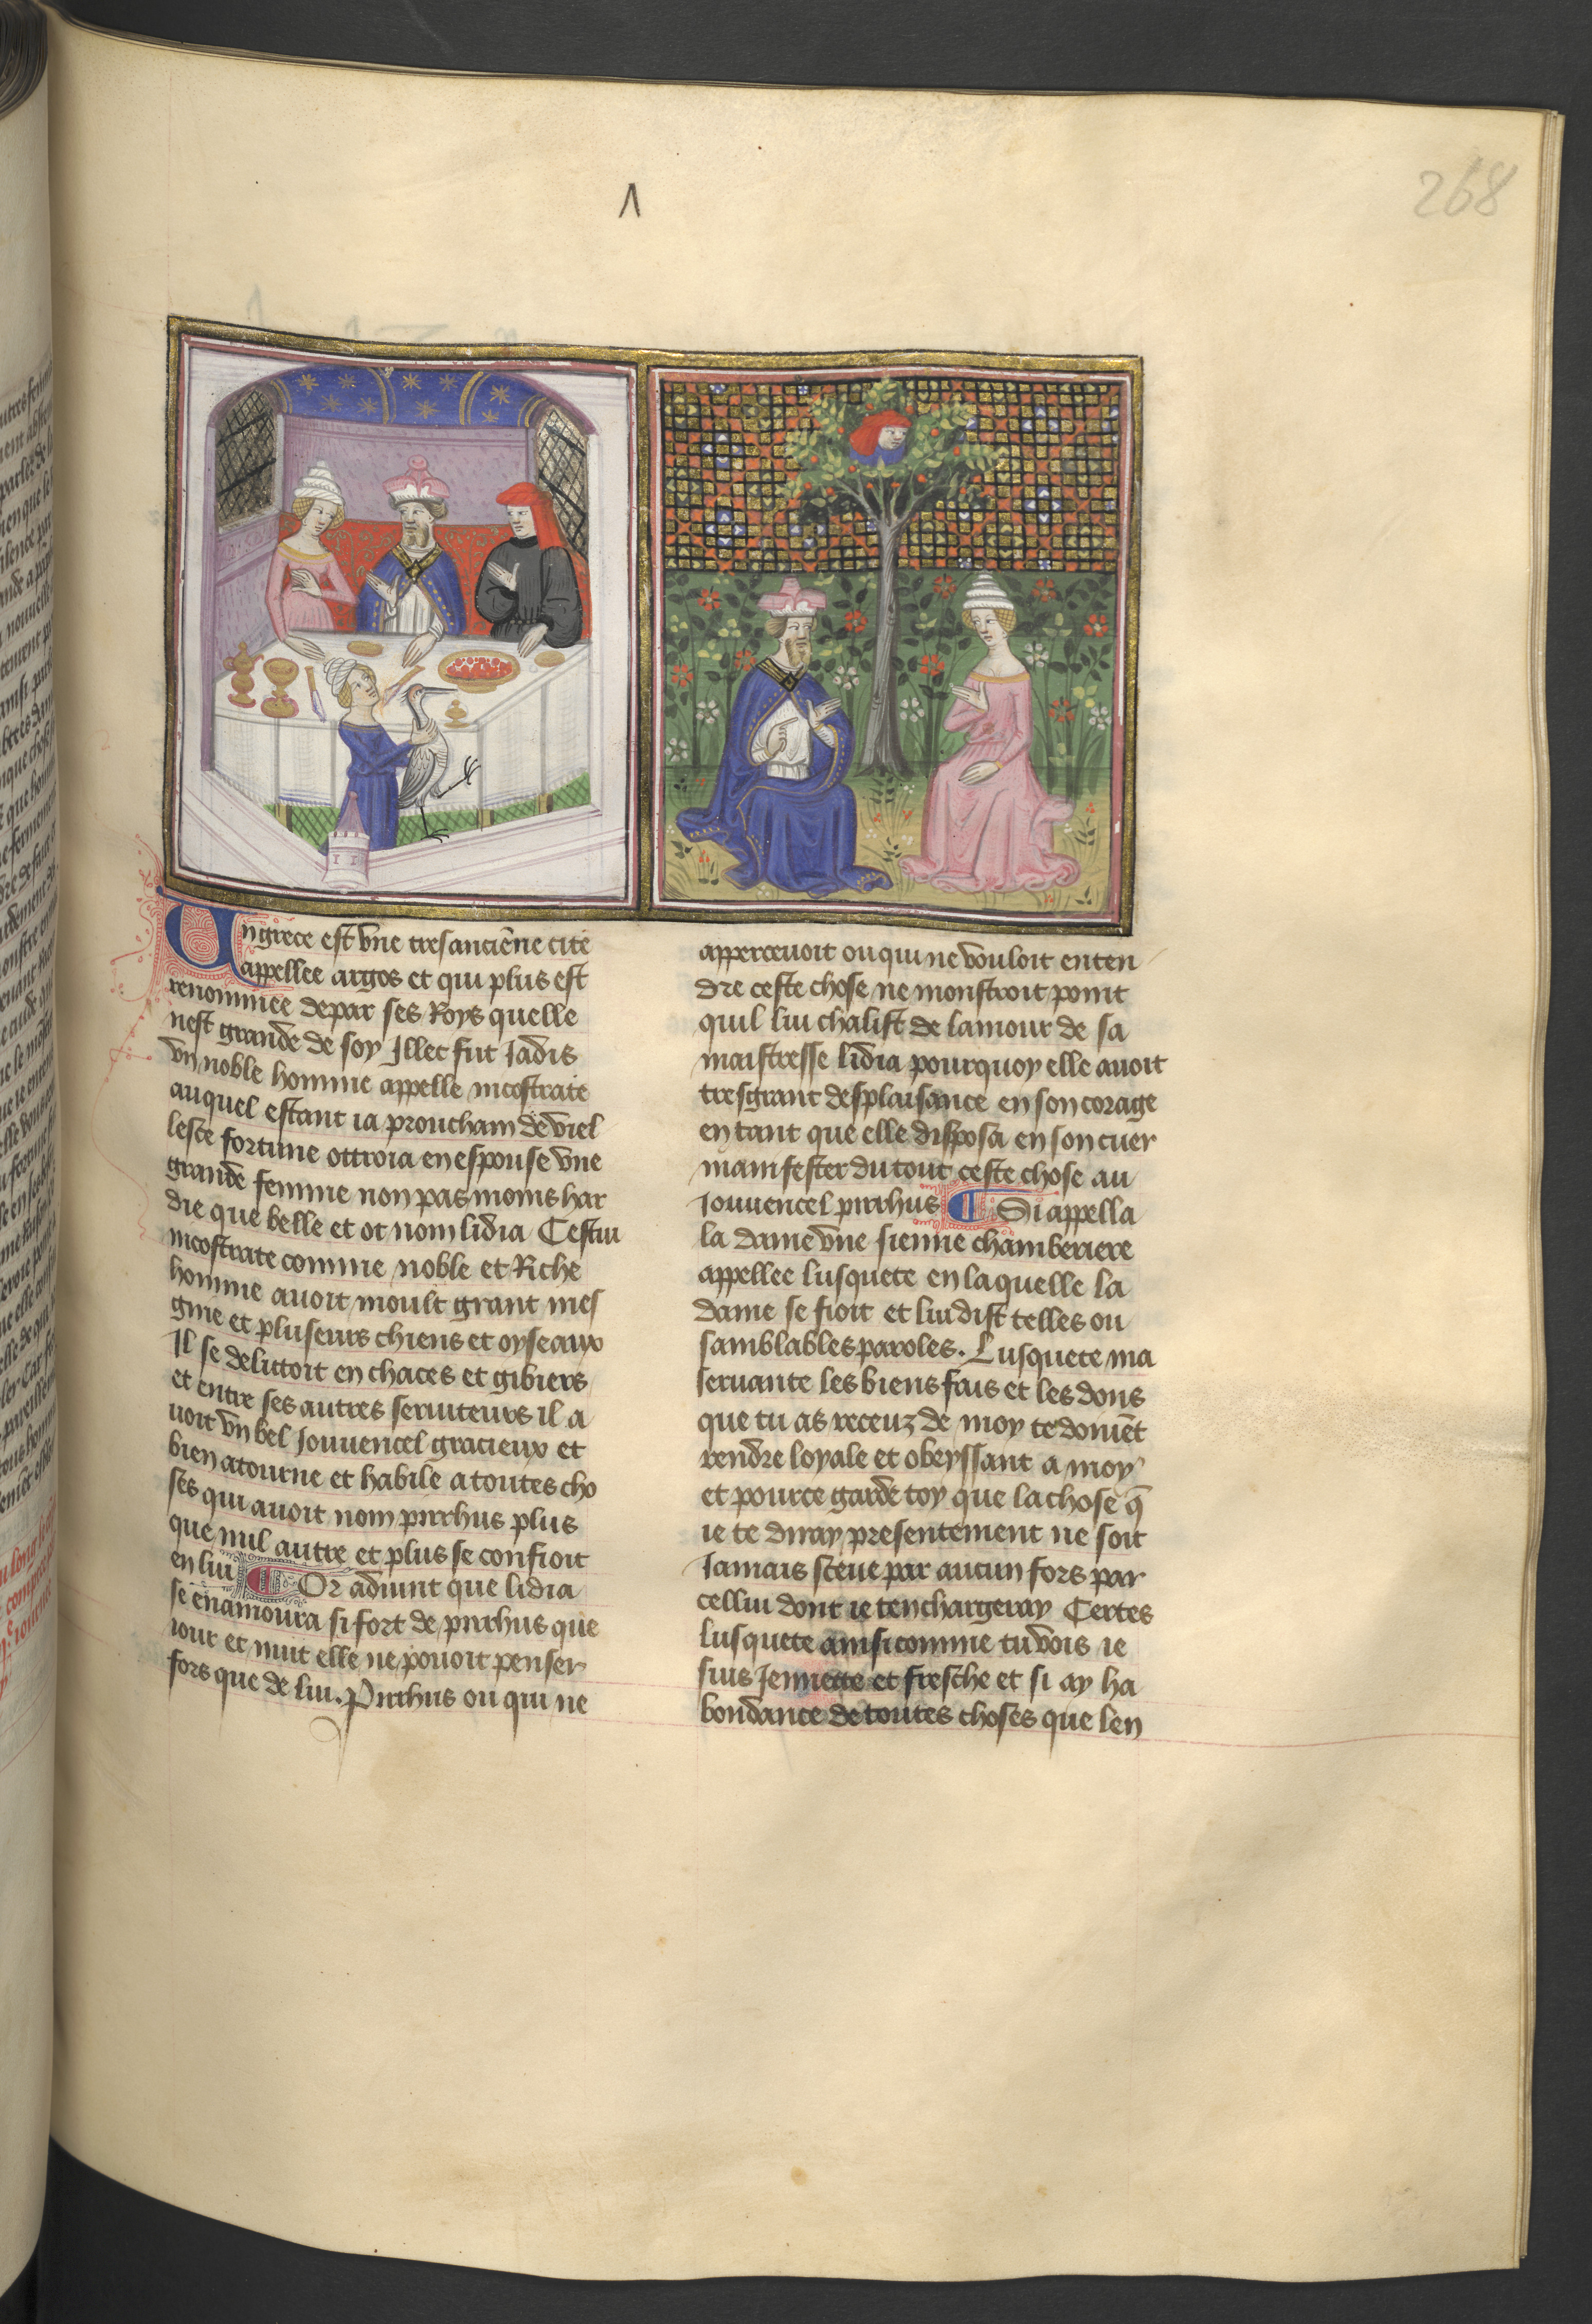 Λ
268
En grece est vne tresanciēne cite
appellee argos et qui plus est
renommee depar ses Roys quelle
nest grande de soy Illec fut Jadis
vn noble homme appelle nicostrate
auquel estant ia prouchain de viel
lesce fortune ottroia en espouse vne
grande femme non pas moins har
die que belle et ot nom lidia Cestui
nicostrate comme noble et Riche
homme auoit moult grant mes
gnie et pluseurs chiens et oyseaux
Il se delittoit en chaces et gibiers
et entre ses autres seruiteurs il a
uoit vn bel Jouuencel gracieux et
bien atourne et habile a toutes cho
ses qui auoit nom pirrhus plus
que nul autre et plus se confioit
en lui Or aduint que lidia
se enamoura si fort de pirrhus que
iour et nuit elle ne pouoit penser
fors que de lui. Pirrhus ou qui ne
apperceuoit ou qui ne vouloit enten
dre ceste chose ne monstroit point
quil lui chalist de lamour de sa
maistresse lidia pourquoy elle auoit
tresgrant desplaisance en son corage
en tant que elle disposa en son cuer
manifester du tout ceste chose au
Jouuencel pirrhus Si appella
la dame vne sienne chamberiere
appellee lusquete en laquelle la
dame se fioit et lui dist telles ou
samblables paroles. Lusquete ma
seruante les biens fais et les dons
que tu as receuz de moy te doiuēt
rendre loyale et obeyssant a moy
et pource garde toy que la chose q̄
ie te diray presentement ne soit
Jamais sceue par aucun fors par
cellui dont ie tenchargeray Certes
lusquete ainsi comme tu vois ie
suis Jennette et fresche et si ay ha
bondance de toutes choses que len